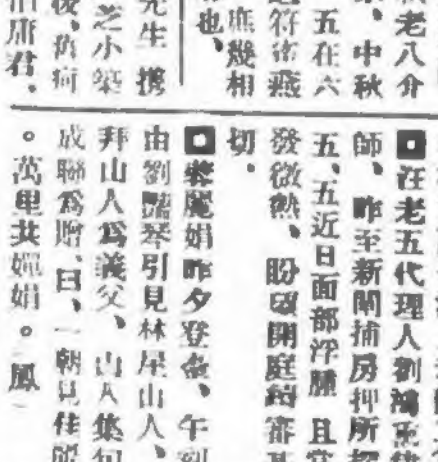 老八介
、中秋
五在六
符
庶幾相
也、
先生攜
之小築
後、
庸君、
■汪老五代理人劉鴻
師、昨至新閘捕房押所探
五、五近日面部浮腫 且常
發微熱、盼望開庭續審甚
切。
■麗娟昨夕登、午刻
由劉艷琴引見林屋山人、
拜山人爲義父、山人集句
成聯爲贈、曰、一朝見佳
。萬里共嬋娟。鳳